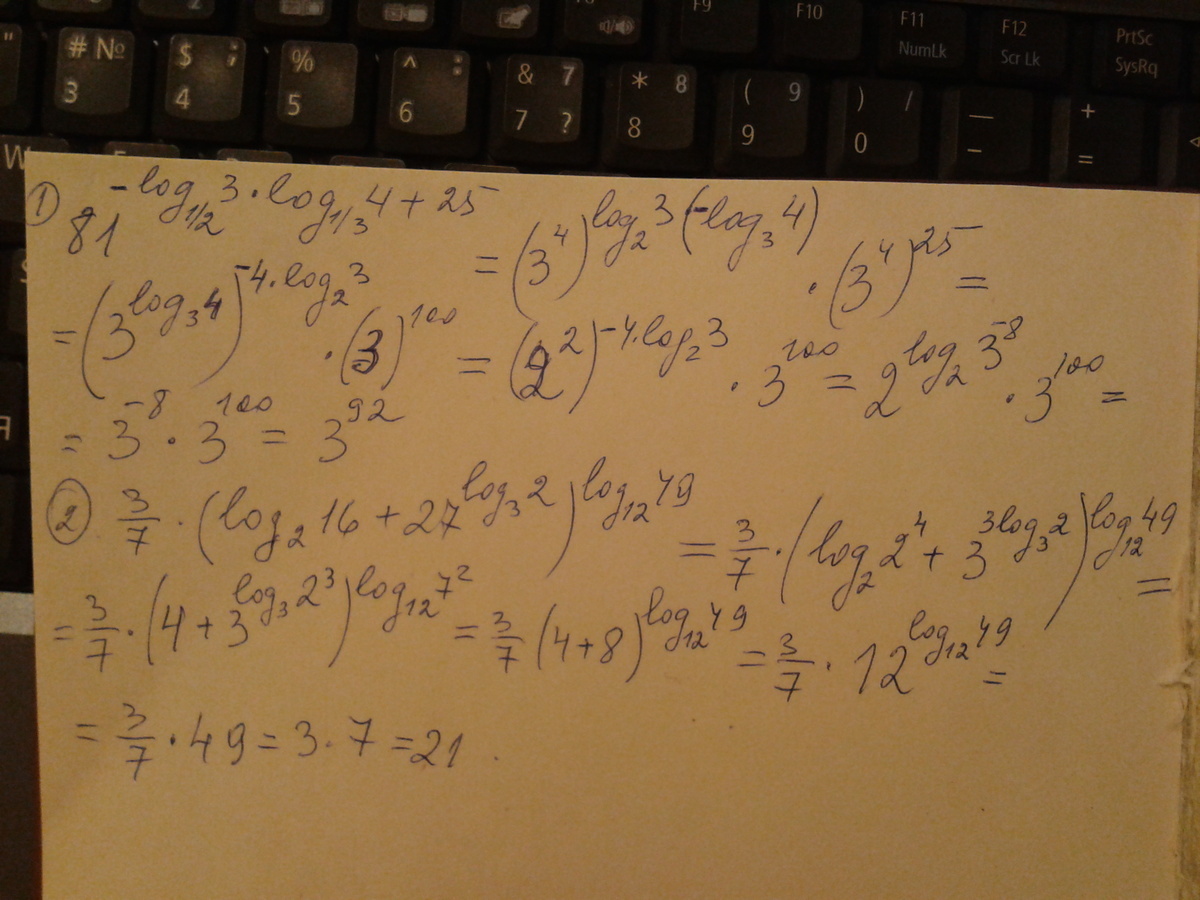 F9 F10 F11 F12 PrtSc
NumLk Scr Lk SysRq
# № $ ; % ^ : & 7 * 8 ( 9 ) / — +
3 4 5 6 7 ? 8 9 0 - =
W
1) 81^{-log_{1/2}3·log_{1/3}4+25} = (3^4)^{log_2 3(-log_3 4)} · (3^4)^{25} =
= (3^{log_3 4})^{-4·log_2 3} · (3)^{100} = (2^2)^{-4·log_2 3} · 3^{100} = 2^{log_2 3^{-8}} · 3^{100} =
= 3^{-8} · 3^{100} = 3^{92}
2) 3/7 · (log_2 16 + 27^{log_3 2})^{log_{12} 49} = 3/7 · (log_2 2^4 + 3^{3log_3 2})^{log_{12} 49} =
= 3/7 · (4 + 3^{log_3 2^3})^{log_{12} 7^2} = 3/7 (4+8)^{log_{12} 49} = 3/7 · 12^{log_{12} 49} =
= 3/7 · 49 = 3·7 = 21.